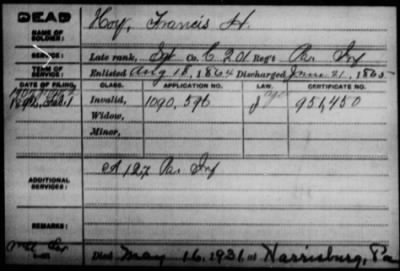 DEAD
NAME OF SOLDIER: Hoy, Francis H.
SERVICE: Late rank, Sgt Co. C 201 Reg't Pa Inf
TERM OF SERVICE: Enlisted Aug 18, 1864 Discharged June 21, 1865
DATE OF FILING. CLASS. APPLICATION NO. LAW. CERTIFICATE NO.
Invalid, 1090,596 J 951,450
Widow,
Minor,
ADDITIONAL SERVICES: A 127 Pa Inf
REMARKS:
Died May 16, 1921, at Harrisburg, Pa